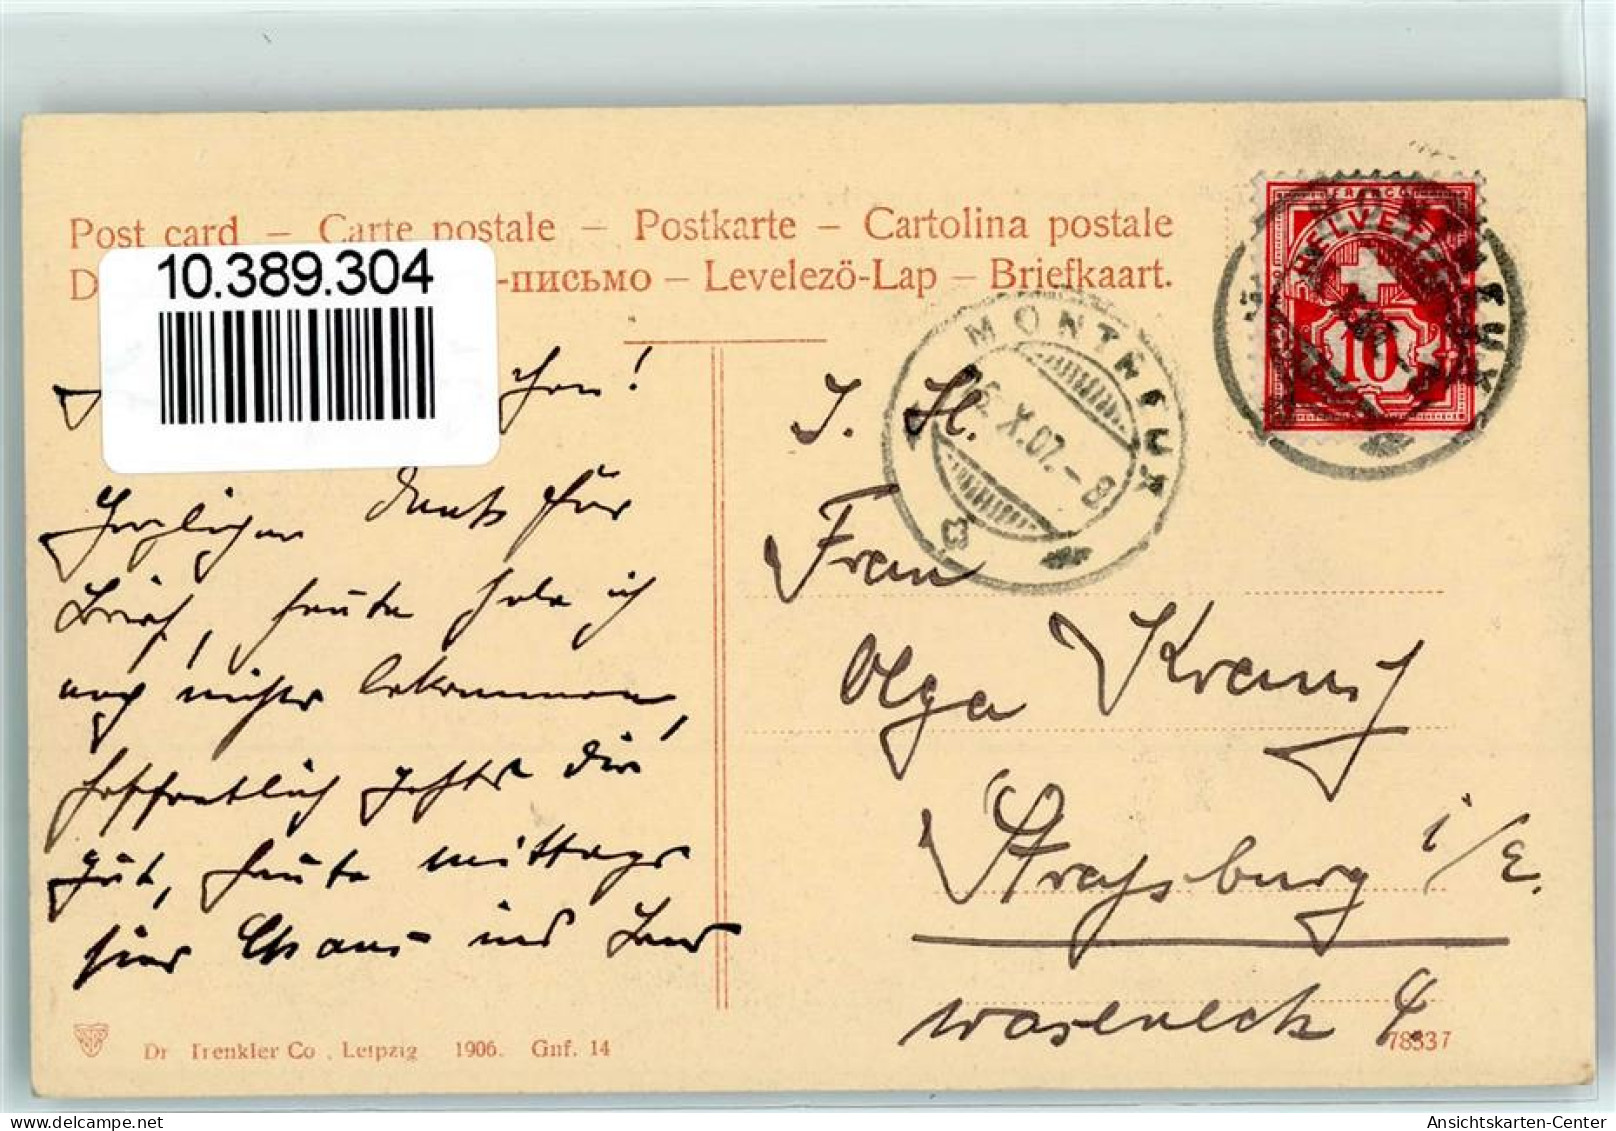 Post card – Carte postale – Postkarte – Cartolina postale
D -письмо – Levelező-Lap – Briefkaart.
10.389.304
FRANCO
HELVETIA
10
MONTREUX
MONTREUX
X.07.–8
Herzlichen Dank für
Brief, heute habe ich
noch nichts bekommen,
hoffentlich geht's dir
gut, heute mittags
hier
Frau
Olga Kraus
Strassburg i/E.
Waseneck 4.
Dr Trenkler Co., Leipzig 1906. Gnf. 14
78337
Ansichtskarten-Center